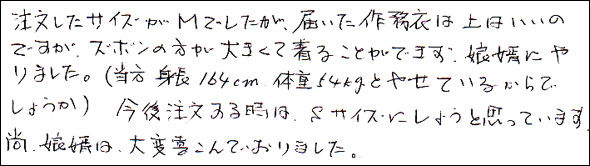 注文したサイズがMでしたが、届いた作務衣は上はいいの
ですが、ズボンの方が大きくて着ることができず、娘婿にや
りました。(当方 身長164cm 体重54kgとやせているからで
しょうか) 今後注文する時は、Sサイズにしようと思っています。
尚、娘婿は、大変喜こんでおりました。